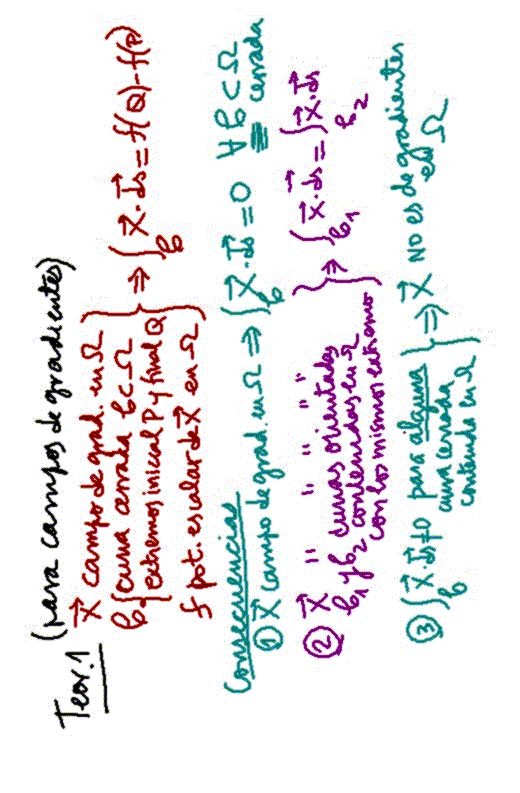 Teor. 1 (para campos de gradientes)
X⃗ campo de grad. en Ω
C { curva cerrada C ⊂ Ω
extremos inicial P y final Q } ⇒ ∫_C X⃗·ds⃗ = f(Q) - f(P)
f pot. escalar de X⃗ en Ω
Consecuencias
① X⃗ campo de grad. en Ω ⇒ ∫_C X⃗·ds⃗ = 0 ∀ C ⊂ Ω
cerrada
② X⃗ " " " " "
C₁ y C₂ curvas orientadas
contenidas en Ω
con los mismos extremos } ⇒ ∫_C₁ X⃗·ds⃗ = ∫_C₂ X⃗·ds⃗
③ ∫_C X⃗·ds⃗ ≠ 0 para alguna
curva cerrada
contenida en Ω } ⇒ X⃗ NO es de gradientes
en Ω